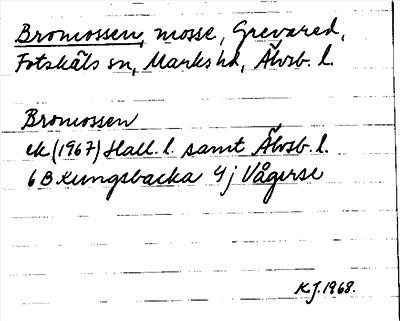 Bromossen, mosse, Grevared,
Fotskäls sn, Marks hd, Älvsb. l.
Bromossen
ek (1967) Hall. l. samt Älvsb. l.
6 B Kungsbacka 4 j Vågerse
K J. 1968.